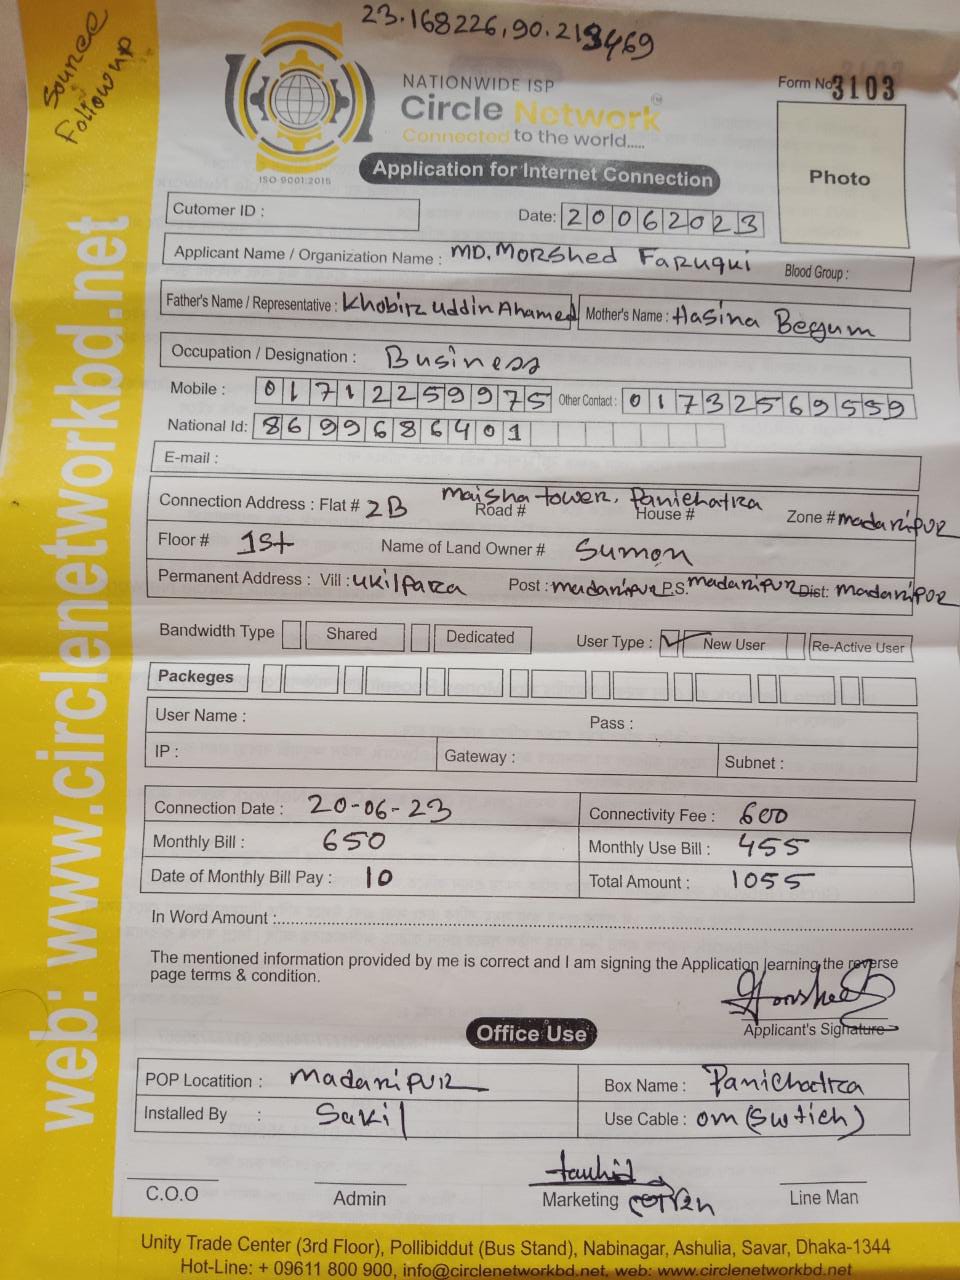 23.168226,90.213469
Source
Followup
NATIONWIDE ISP
Circle Network
Connected to the world.....
ISO 9001:2015
Form No 3103
Photo
Application for Internet Connection
Cutomer ID :
Date: 20062023
Applicant Name / Organization Name : MD. Morshed Faruqui Blood Group :
Father's Name / Representative : Khobir uddin Ahamed Mother's Name : Hasina Begum
Occupation / Designation : Business
Mobile : 01712259975 Other Contact : 01732569559
National Id: 8699686401
E-mail :
Connection Address : Flat # 2B Maisha tower, Panichatra Road # House # Zone # madaripur
Floor # 1st Name of Land Owner # Sumon
Permanent Address : Vill : ukilpara Post : madaripur P.S. madaripur Dist: madaripur
Bandwidth Type Shared Dedicated User Type : ✓ New User Re-Active User
Packeges
User Name : Pass :
IP : Gateway : Subnet :
Connection Date : 20-06-23 Connectivity Fee : 600
Monthly Bill : 650 Monthly Use Bill : 455
Date of Monthly Bill Pay : 10 Total Amount : 1055
In Word Amount :
The mentioned information provided by me is correct and I am signing the Application learning the reverse
page terms & condition.
Morshed
Applicant's Signature
Office Use
POP Locatition : Madaripur Box Name : Panichatra
Installed By : Sakil Use Cable : om (Swtich)
tauhid
C.O.O Admin Marketing Line Man
Unity Trade Center (3rd Floor), Pollibiddut (Bus Stand), Nabinagar, Ashulia, Savar, Dhaka-1344
Hot-Line: + 09611 800 900, info@circlenetworkbd.net, web: www.circlenetworkbd.net
web: www.circlenetworkbd.net